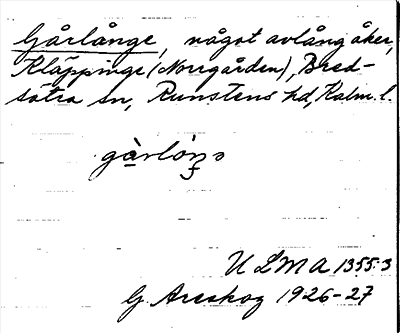 Gårlånge, något avlång åker,
Kläppinge (Norrgården), Bred-
sätra sn, Runstens hd, Kalm. l.
ULMA 1355:3
G. Areskog 1926-27